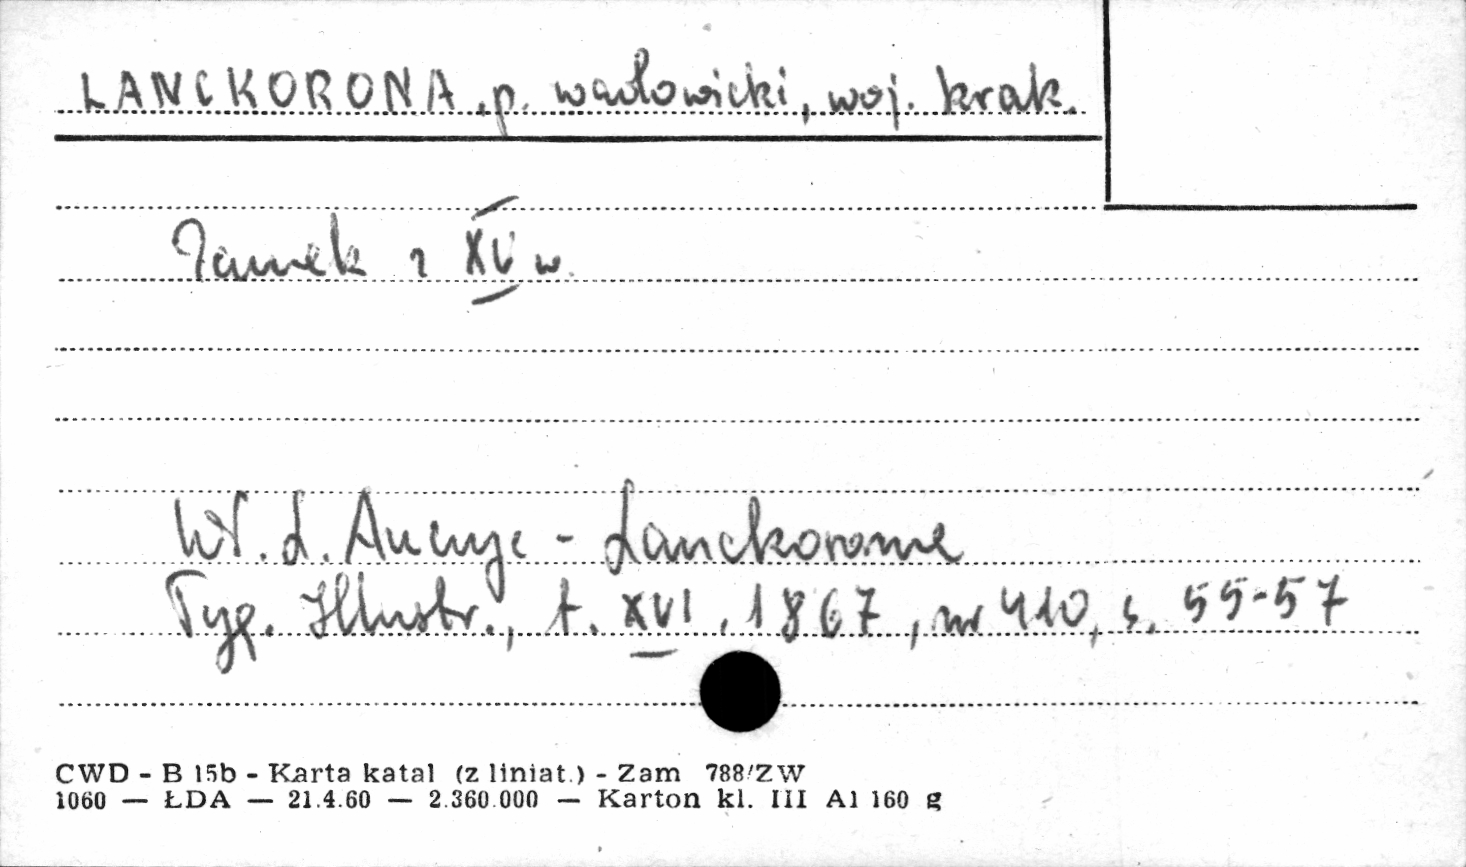 LANCKORONA, p. wadowicki, woj. krak.
Zamek z XV w.
Wł. L. Anczyc - Lanckorona
Tyg. Illustr., t. XVI, 1867, nr 410, s. 55-57
CWD - B 15b - Karta katal (z liniat.) - Zam 788/ZW
1060 — ŁDA — 21.4.60 — 2.360.000 — Karton kl. III A1 160 g